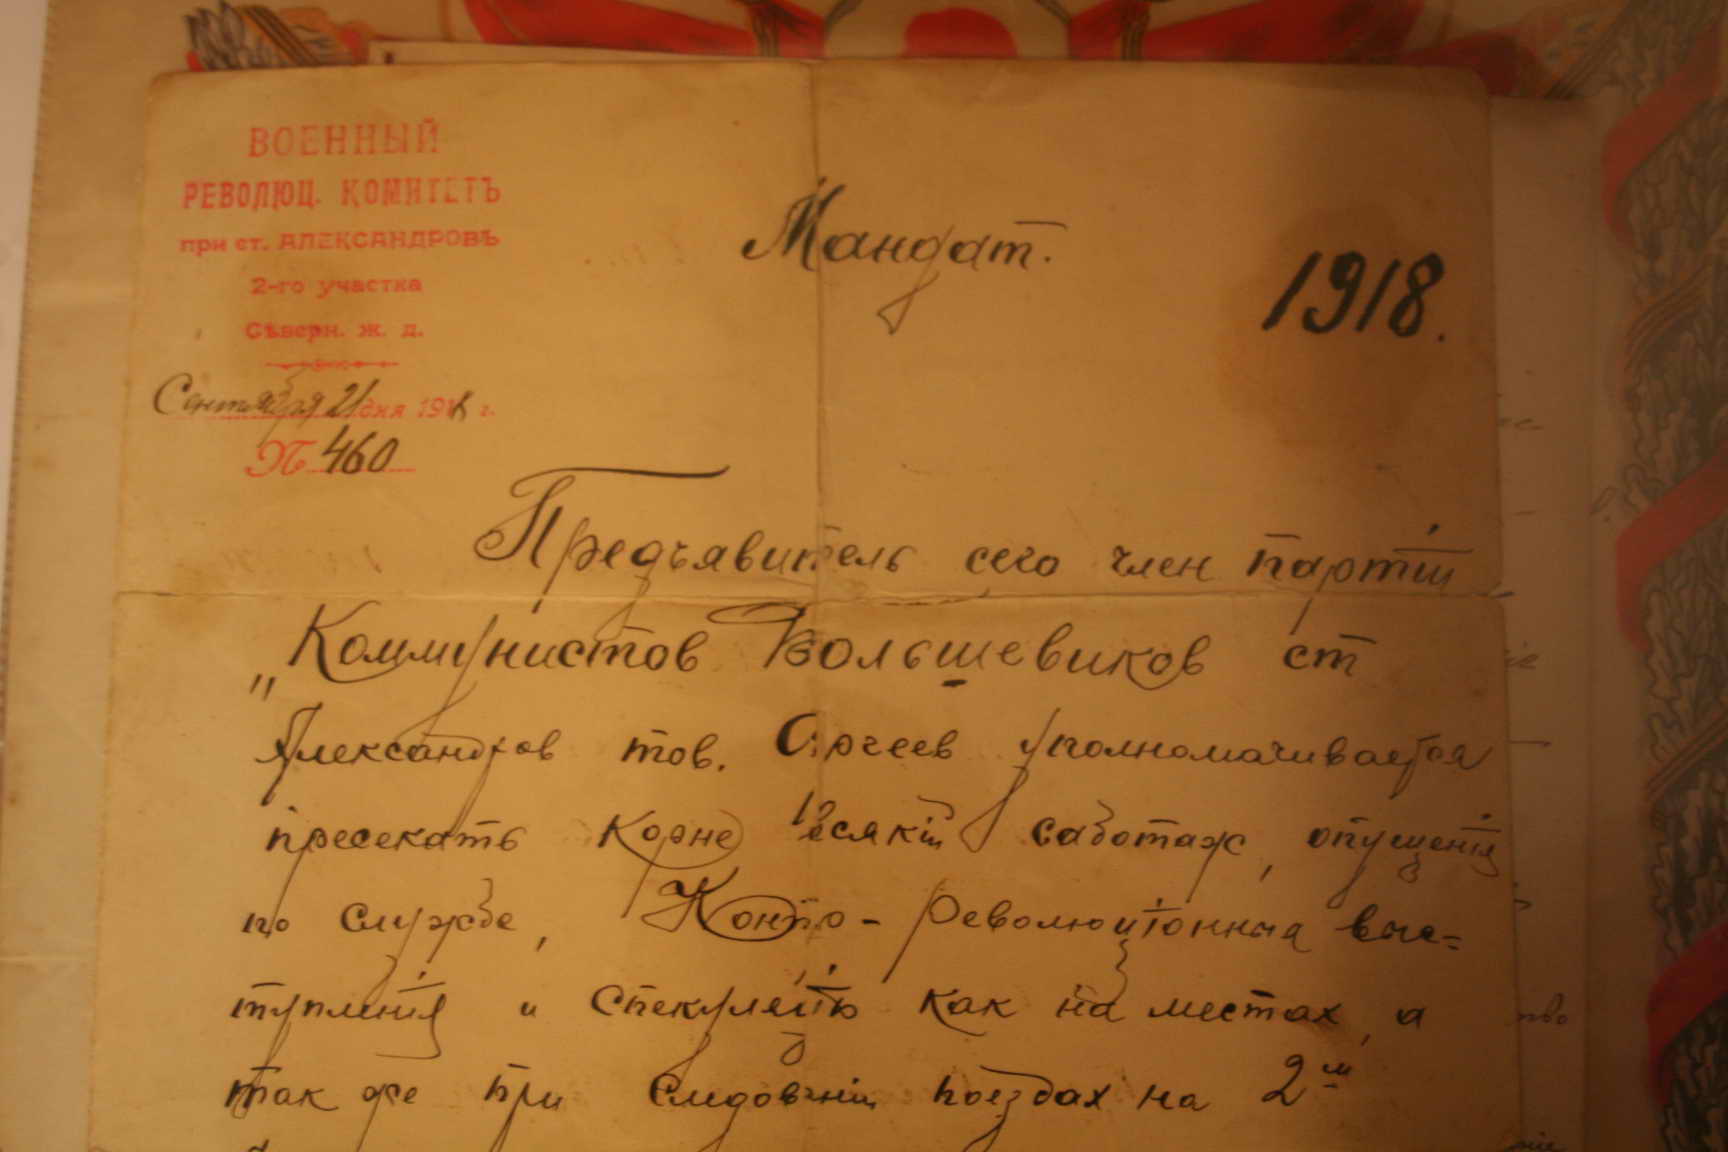 ВОЕННЫЙ
РЕВОЛЮЦ. КОМИТЕТЪ
при ст. АЛЕКСАНДРОВЪ
2-го участка
Сѣверн. ж. д.
Сентября 21 дня 1918 г.
№ 460
Мандат.
1918.
Предъявитель сего член партіи
„Коммунистов Большевиков ст
Александров тов. Сергеев уполномачивается
пресекать Корне всякій саботаж, опущенія
по службе, Контр-Революціонныя выс=
тупленія и Спекуляцію как на местах, а
так же при Следованіи поездах на 2м